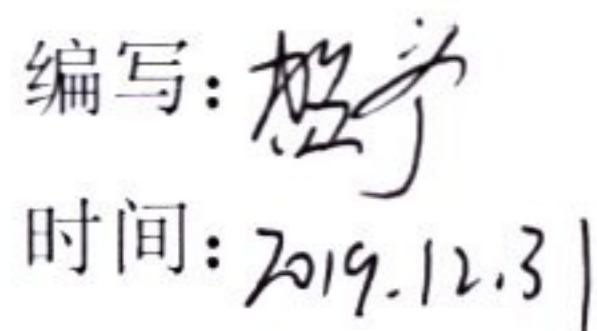 编写:
时间:2019.12.31